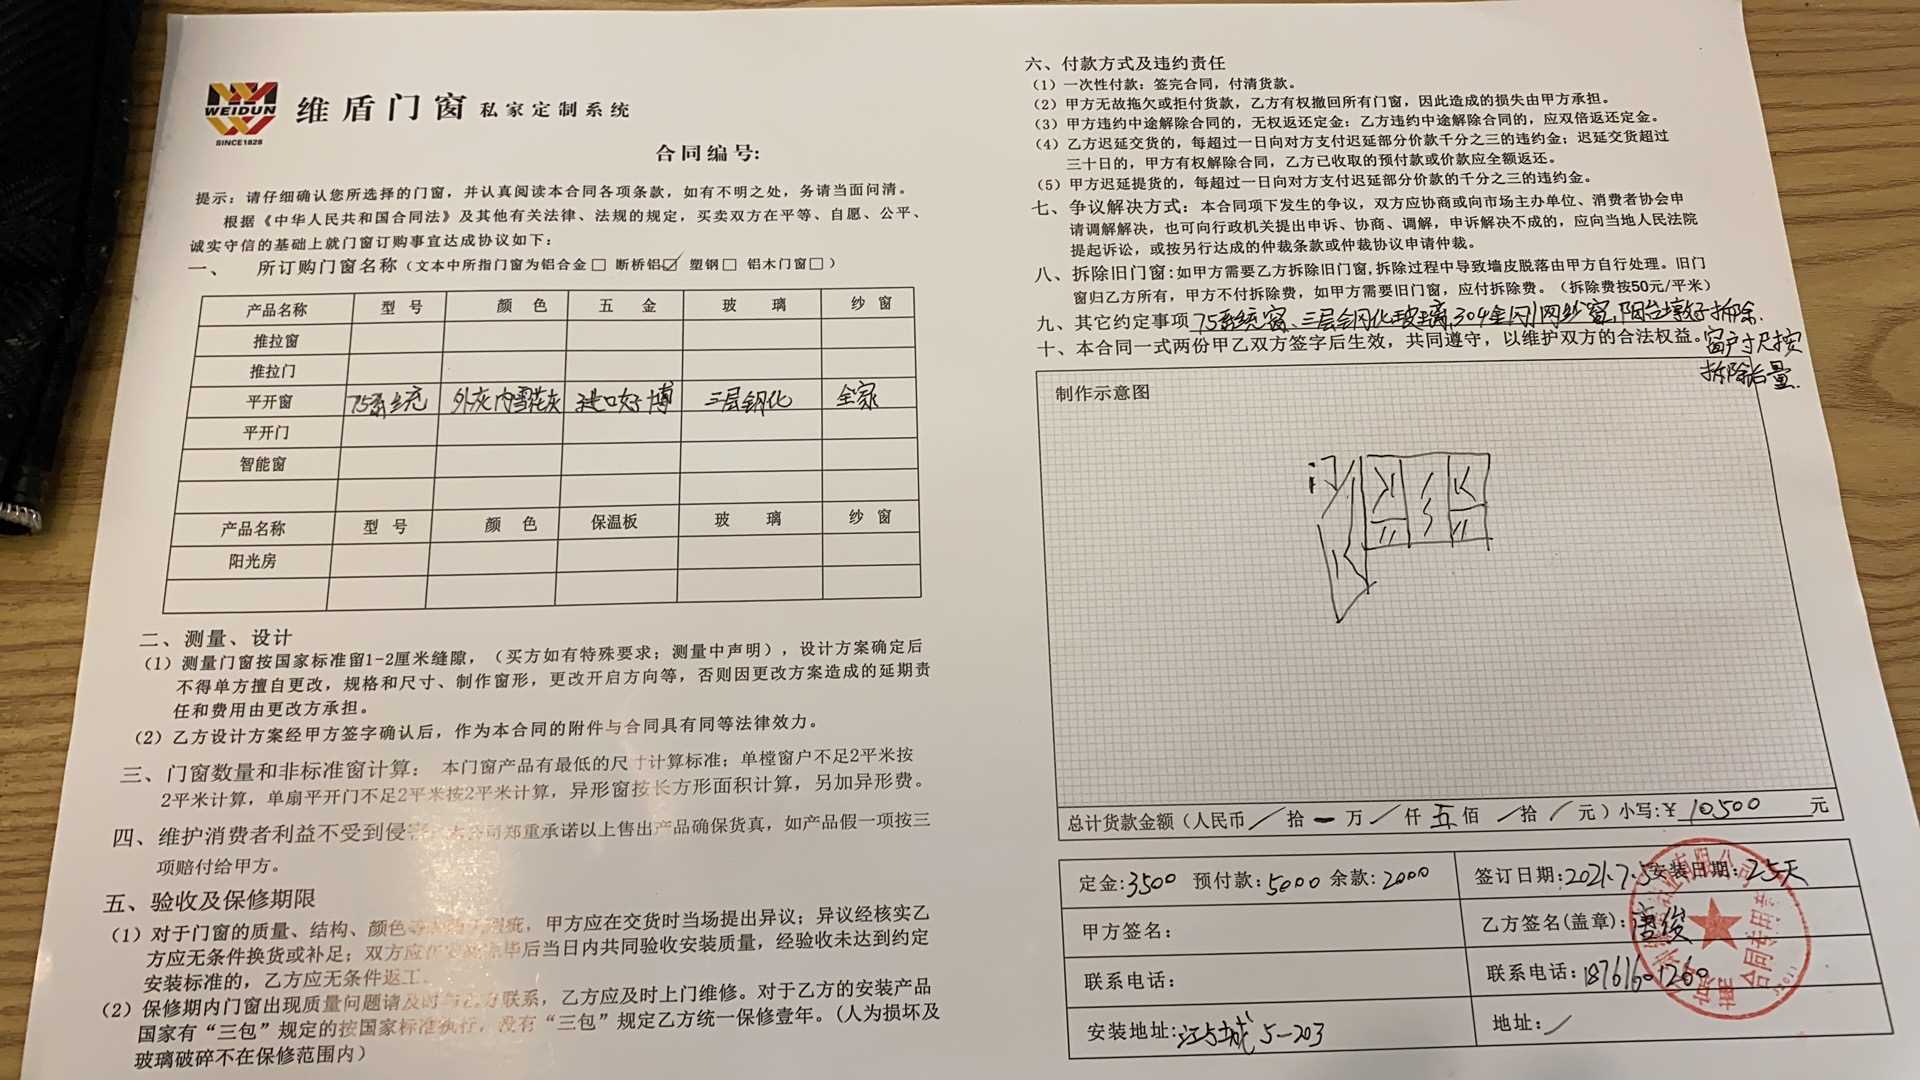 WEIDUN
SINCE1828
维盾门窗 私家定制系统
合同编号:
提示：请仔细确认您所选择的门窗，并认真阅读本合同各项条款，如有不明之处，务请当面问清。
根据《中华人民共和国合同法》及其他有关法律、法规的规定，买卖双方在平等、自愿、公平、
诚实守信的基础上就门窗订购事宜达成协议如下：
一、 所订购门窗名称（文本中所指门窗为铝合金□ 断桥铝☑ 塑钢□ 铝木门窗□）
产品名称 型号 颜色 五金 玻璃 纱窗
推拉窗
推拉门
平开窗 75系统 外灰内雪花灰 进口好博 三层钢化 全家
平开门
智能窗
产品名称 型号 颜色 保温板 玻璃 纱窗
阳光房
二、测量、设计
（1）测量门窗按国家标准留1-2厘米缝隙，（买方如有特殊要求；测量中声明），设计方案确定后
不得单方擅自更改，规格和尺寸、制作窗形，更改开启方向等，否则因更改方案造成的延期责
任和费用由更改方承担。
（2）乙方设计方案经甲方签字确认后，作为本合同的附件与合同具有同等法律效力。
三、门窗数量和非标准窗计算： 本门窗产品有最低的尺寸计算标准；单樘窗户不足2平米按
2平米计算，单扇平开门不足2平米按2平米计算，异形窗按长方形面积计算，另加异形费。
四、维护消费者利益不受到侵害：本公司郑重承诺以上售出产品确保货真，如产品假一项按三
项赔付给甲方。
五、验收及保修期限
（1）对于门窗的质量、结构、颜色 瑕疵，甲方应在交货时当场提出异议；异议经核实乙
方应无条件换货或补足；双方应在安装完毕后当日内共同验收安装质量，经验收未达到约定
安装标准的，乙方应无条件返工。
（2）保修期内门窗出现质量问题请及时与乙方联系，乙方应及时上门维修。对于乙方的安装产品
国家有“三包”规定的按国家标准执行，没有“三包”规定乙方统一保修壹年。（人为损坏及
玻璃破碎不在保修范围内）
六、付款方式及违约责任
（1）一次性付款：签完合同，付清货款。
（2）甲方无故拖欠或拒付货款，乙方有权撤回所有门窗，因此造成的损失由甲方承担。
（3）甲方违约中途解除合同的，无权返还定金；乙方违约中途解除合同的，应双倍返还定金。
（4）乙方迟延交货的，每超过一日向对方支付迟延部分价款千分之三的违约金；迟延交货超过
三十日的，甲方有权解除合同，乙方已收取的预付款或价款应全额返还。
（5）甲方迟延提货的，每超过一日向对方支付迟延部分价款的千分之三的违约金。
七、争议解决方式：本合同项下发生的争议，双方应协商或向市场主办单位、消费者协会申
请调解解决，也可向行政机关提出申诉、协商、调解，申诉解决不成的，应向当地人民法院
提起诉讼，或按另行达成的仲裁条款或仲裁协议申请仲裁。
八、拆除旧门窗：如甲方需要乙方拆除旧门窗，拆除过程中导致墙皮脱落由甲方自行处理。旧门
窗归乙方所有，甲方不付拆除费，如甲方需要旧门窗，应付拆除费。（拆除费按50元/平米）
九、其它约定事项 75系统窗、三层钢化玻璃，304金刚网纱窗，阳台 拆除.
十、本合同一式两份甲乙双方签字后生效，共同遵守，以维护双方的合法权益。窗户寸尺按
拆除后量.
制作示意图
门
总计货款金额（人民币／拾一万／仟五佰／拾／元）小写:￥10500元
定金:3500 预付款:5000 余款:2000 签订日期:2021.7.5 安装日期:25天
甲方签名: 乙方签名(盖章):唐俊
联系电话: 联系电话:18761601260
安装地址: 5-203 地址:／
合同专用章